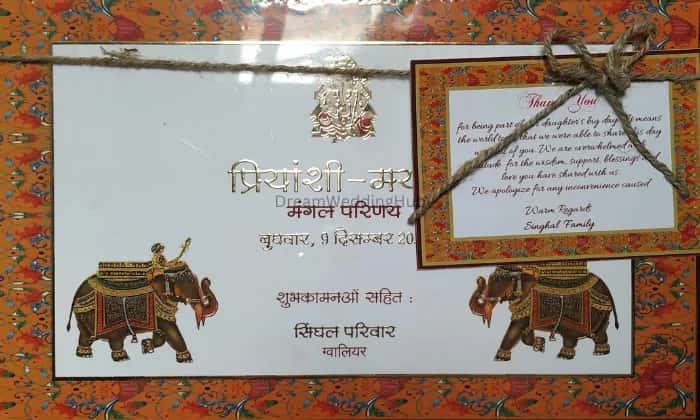 प्रियांशी-मय
मंगल परिणय
बुधवार, 9 दिसम्बर 20
शुभकामनाओं सहित :
सिंघल परिवार
ग्वालियर
DreamWeddingHub
Thank You
for being part of daughter's big day. It means
the world to that we were able to share this day
of you. We are overwhelmed
for the wisdom, support, blessings
love you have shared with us.
We apologize for any inconvenience caused
Warm Regards,
Singhal Family